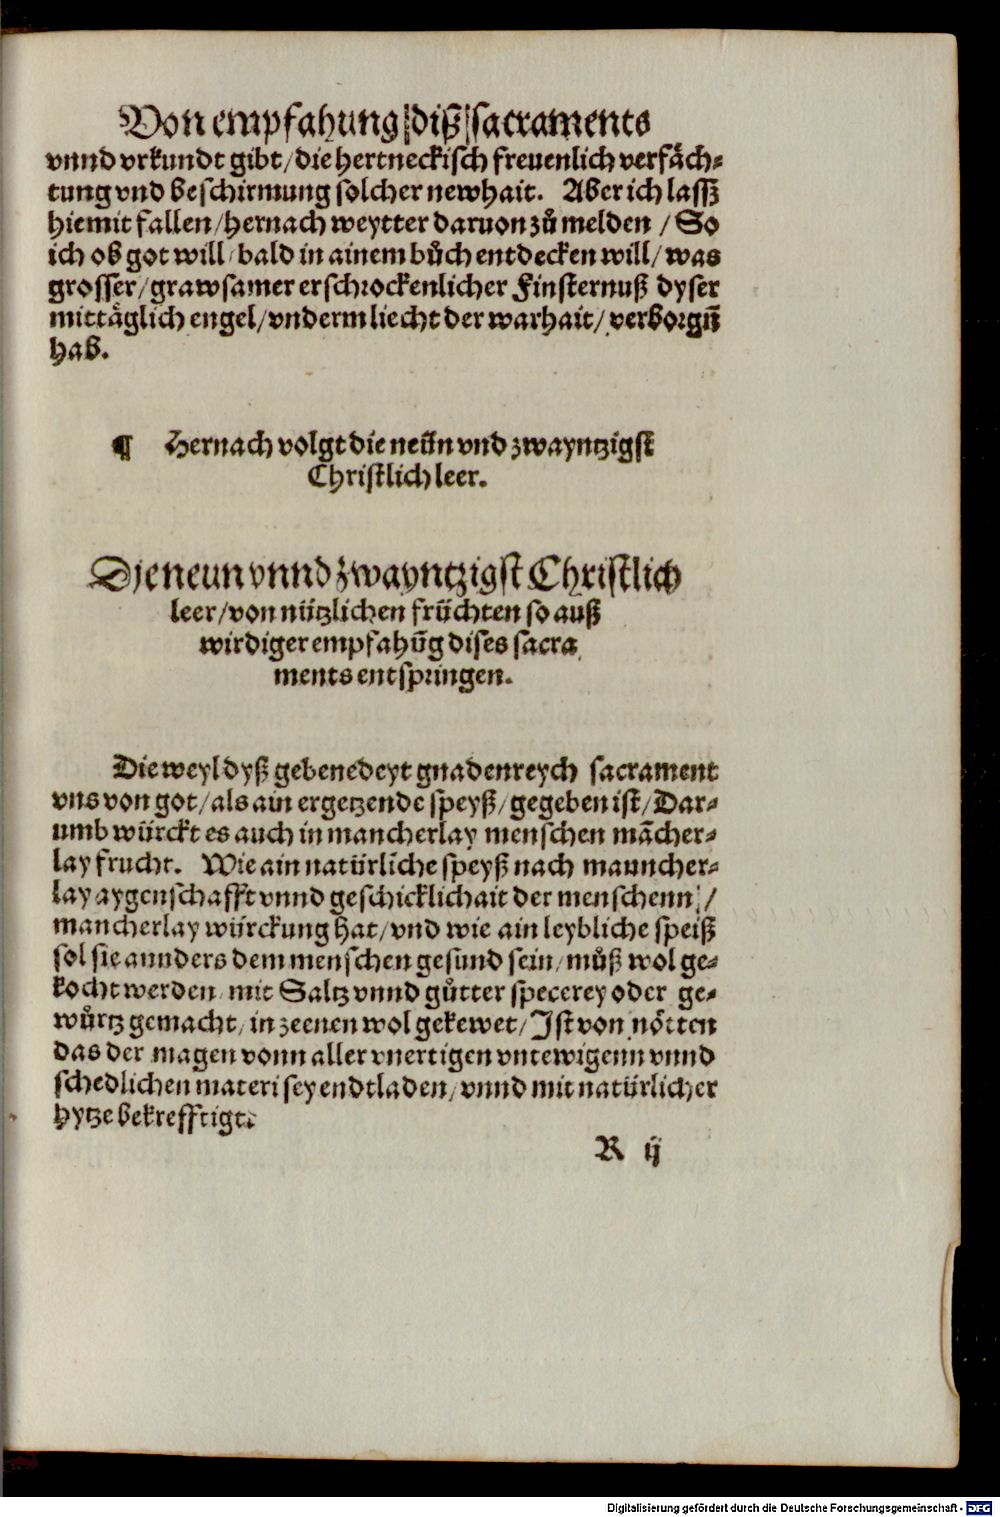 Von empfahung diß sacraments
vnnd vrkundt gibt/die hertneckisch freuenlich verfäch-
tung vnd beschirmung solcher newhait. Aber ich lassz
hiemit fallen/hernach weytter daruon zů melden / So
ich ob got will/bald in ainem bůch entdecken will/ was
grosser/grawsamer erschrockenlicher Finsternuß dyser
mittäglich engel/vnderm liecht der warhait/ verborgñ
hab.
¶ Hernach volgt die neün vnd zwayntzigst
Christlich leer.
Die neun vnnd zwayntzigst Christlich
leer/von nützlichen früchten so auß
wirdiger empfahũg dises sacra
ments entspringen.
Die weyl dyß gebenedeyt gnadenreych sacrament
vns von got/als ain ergetzende speyß/gegeben ist/Dar-
umb würckt es auch in mancherlay menschen mãcher-
lay frucht. Wie ain natürliche speyß nach mauncher-
lay aygenschafft vnnd geschicklichait der menschenn /
mancherlay würckung hat/vnd wie ain leybliche speiß
sol sie annders dem menschen gesund sein/můß wol ge-
kocht werden/mit Saltz vnnd gůtter specerey oder ge-
würtz gemacht/in zeenen wol gekewet/Ist von nötten
das der magen vonn aller vnertigen vntewigenn vnnd
schedlichen materi sey endtladen/vnnd mit natürlicher
hytze bekrefftigt.
R ij
Digitalisierung gefördert durch die Deutsche Forschungsgemeinschaft - DFG